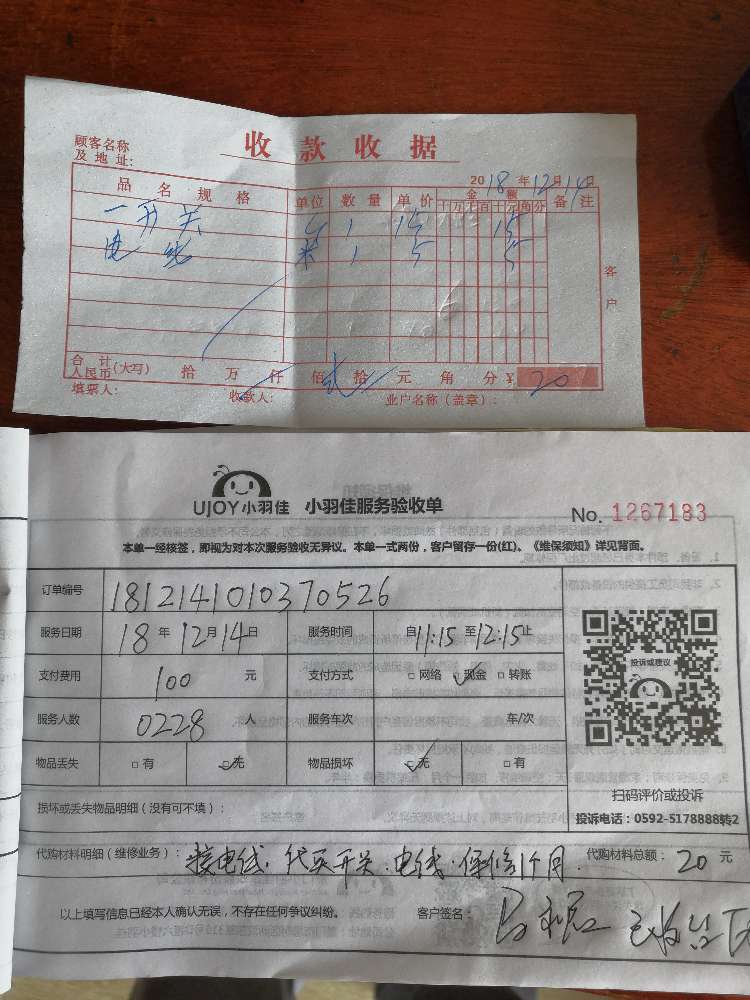 收款收据
顾客名称
及地址:
2018年12月14日
品名规格 单位 数量 单价 金额 备注
十万千百十元角分
一开关 个 1 15 15
电线 米 1 5 5
客户
合计
人民币(大写) 拾 万 仟 佰 贰拾 元 角 分 ¥ 20
填票人: 收款人: 业户名称(盖章):
UJOY小羽佳 小羽佳服务验收单
No. 1267183
本单一经核签,即视为对本次服务验收无异议。本单一式两份,客户留存一份(红)。《维保须知》详见背面。
订单编号 1812141010370526
服务日期 18年12月14日 服务时间 自11:15至12:15止
支付费用 100 元 支付方式 □网络 ☑现金 □转账
投诉或建议
服务人数 0228 人 服务车次 车/次
物品丢失 □有 ☑无 物品损坏 ☑无 □有
扫码评价或投诉
损坏或丢失物品明细(没有可不填):
投诉电话:0592-5178888转2
代购材料明细(维修业务): 接电线.代买开关.电线.保修1个月. 代购材料总额: 20 元
以上填写信息已经本人确认无误,不存在任何争议纠纷。 客户签名: